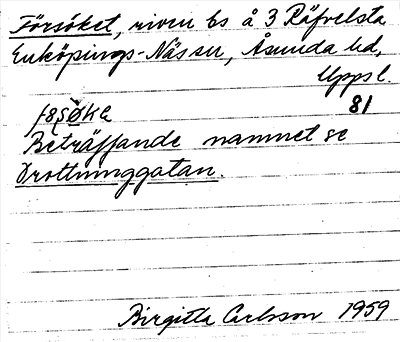 Försöket, riven bs å 3 Räfvelsta
Enköpings-Näs sn, Åsunda hd,
Uppsl.
81
Beträffande namnet se
Drottninggatan.
Birgitta Carlsson 1959